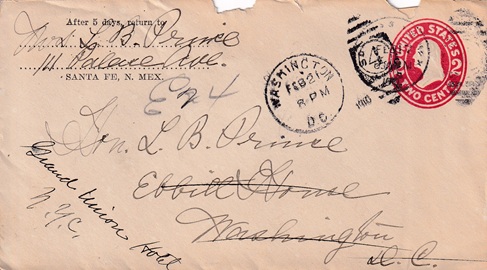 After 5 days, return to
Mrs L. B. Prince
111 Palace Ave.
SANTA FE, N. MEX.
WASHINGTON
FEB 21
8 PM
D.C.
UNITED STATES
2
TWO CENTS
Hon. L. B. Prince
Ebbitt House
Washington
D. C.
Grand Union Hotel
N.Y.C.